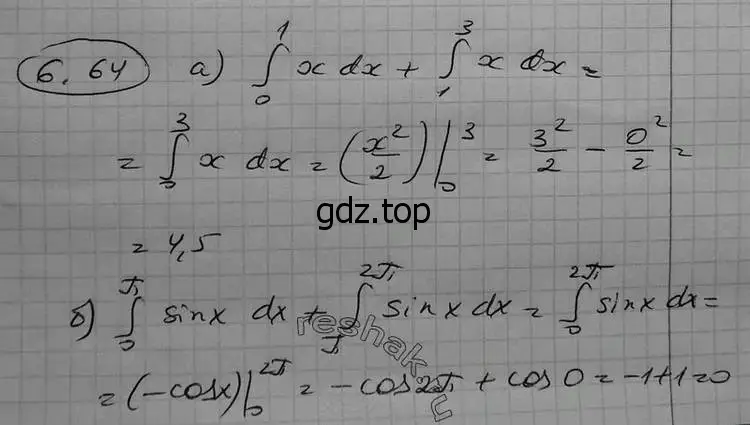 6.64 а) ∫₀¹ x dx + ∫₁³ x dx =
= ∫₀³ x dx = (x²/2)|₀³ = 3²/2 − 0²/2 =
gdz.top
= 4,5
б) ∫₀^π sinx dx + ∫_π^2π sinx dx = ∫₀^2π sinx dx =
reshak
= (−cosx)|₀^2π = −cos2π + cos0 = −1+1=0